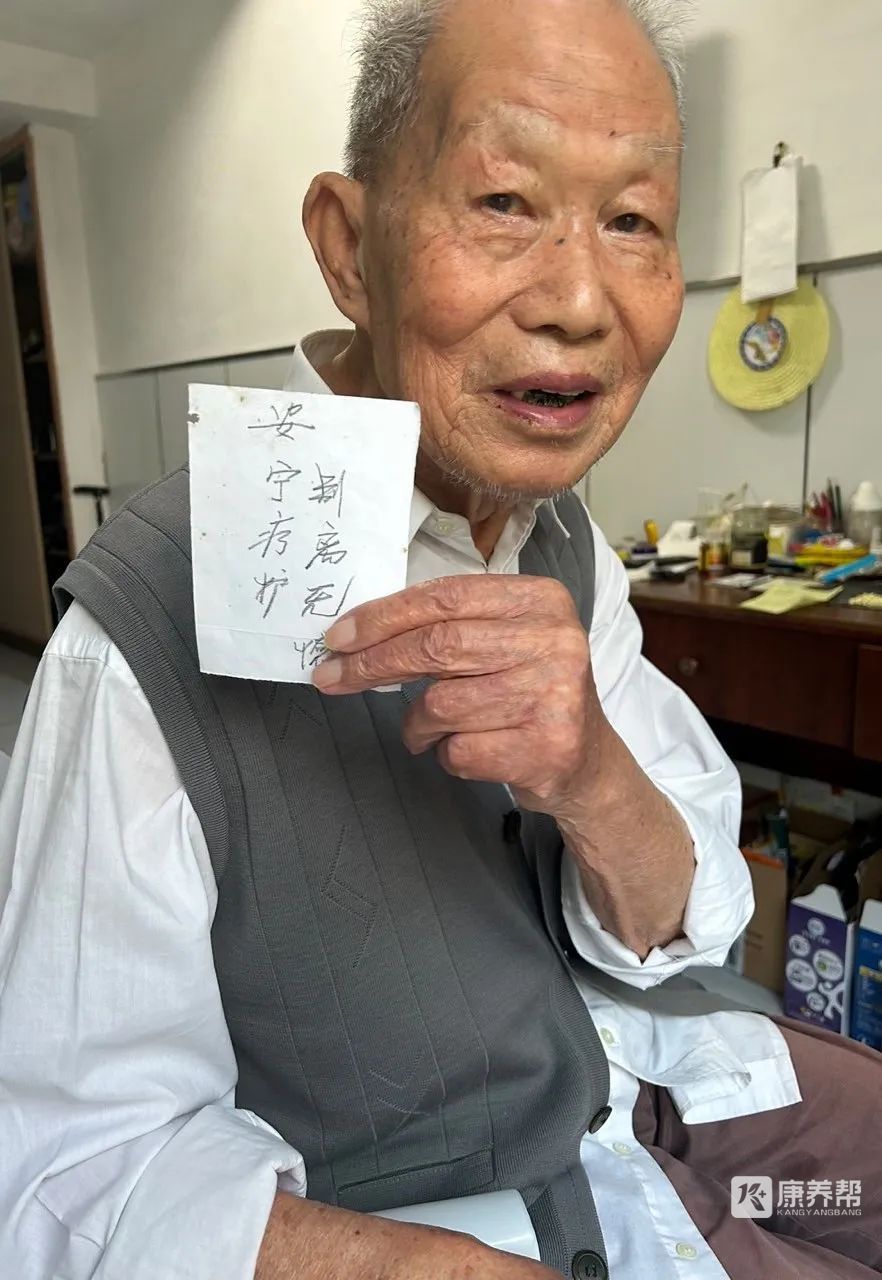 安宁疗护
别离无憾
K+
康养帮
KANGYANGBANG